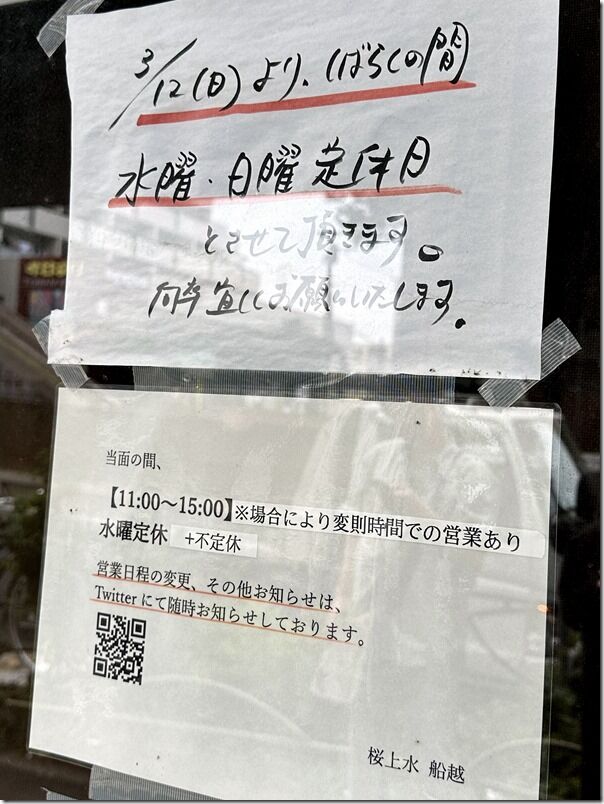 3/12(日)より、しばらくの間
水曜・日曜定休日
とさせて頂きます。
何卒宜しくお願いいたします。
当面の間、
【11:00～15:00】※場合により変則時間での営業あり
水曜定休 +不定休
営業日程の変更、その他お知らせは、
Twitterにて随時お知らせしております。
桜上水 船越